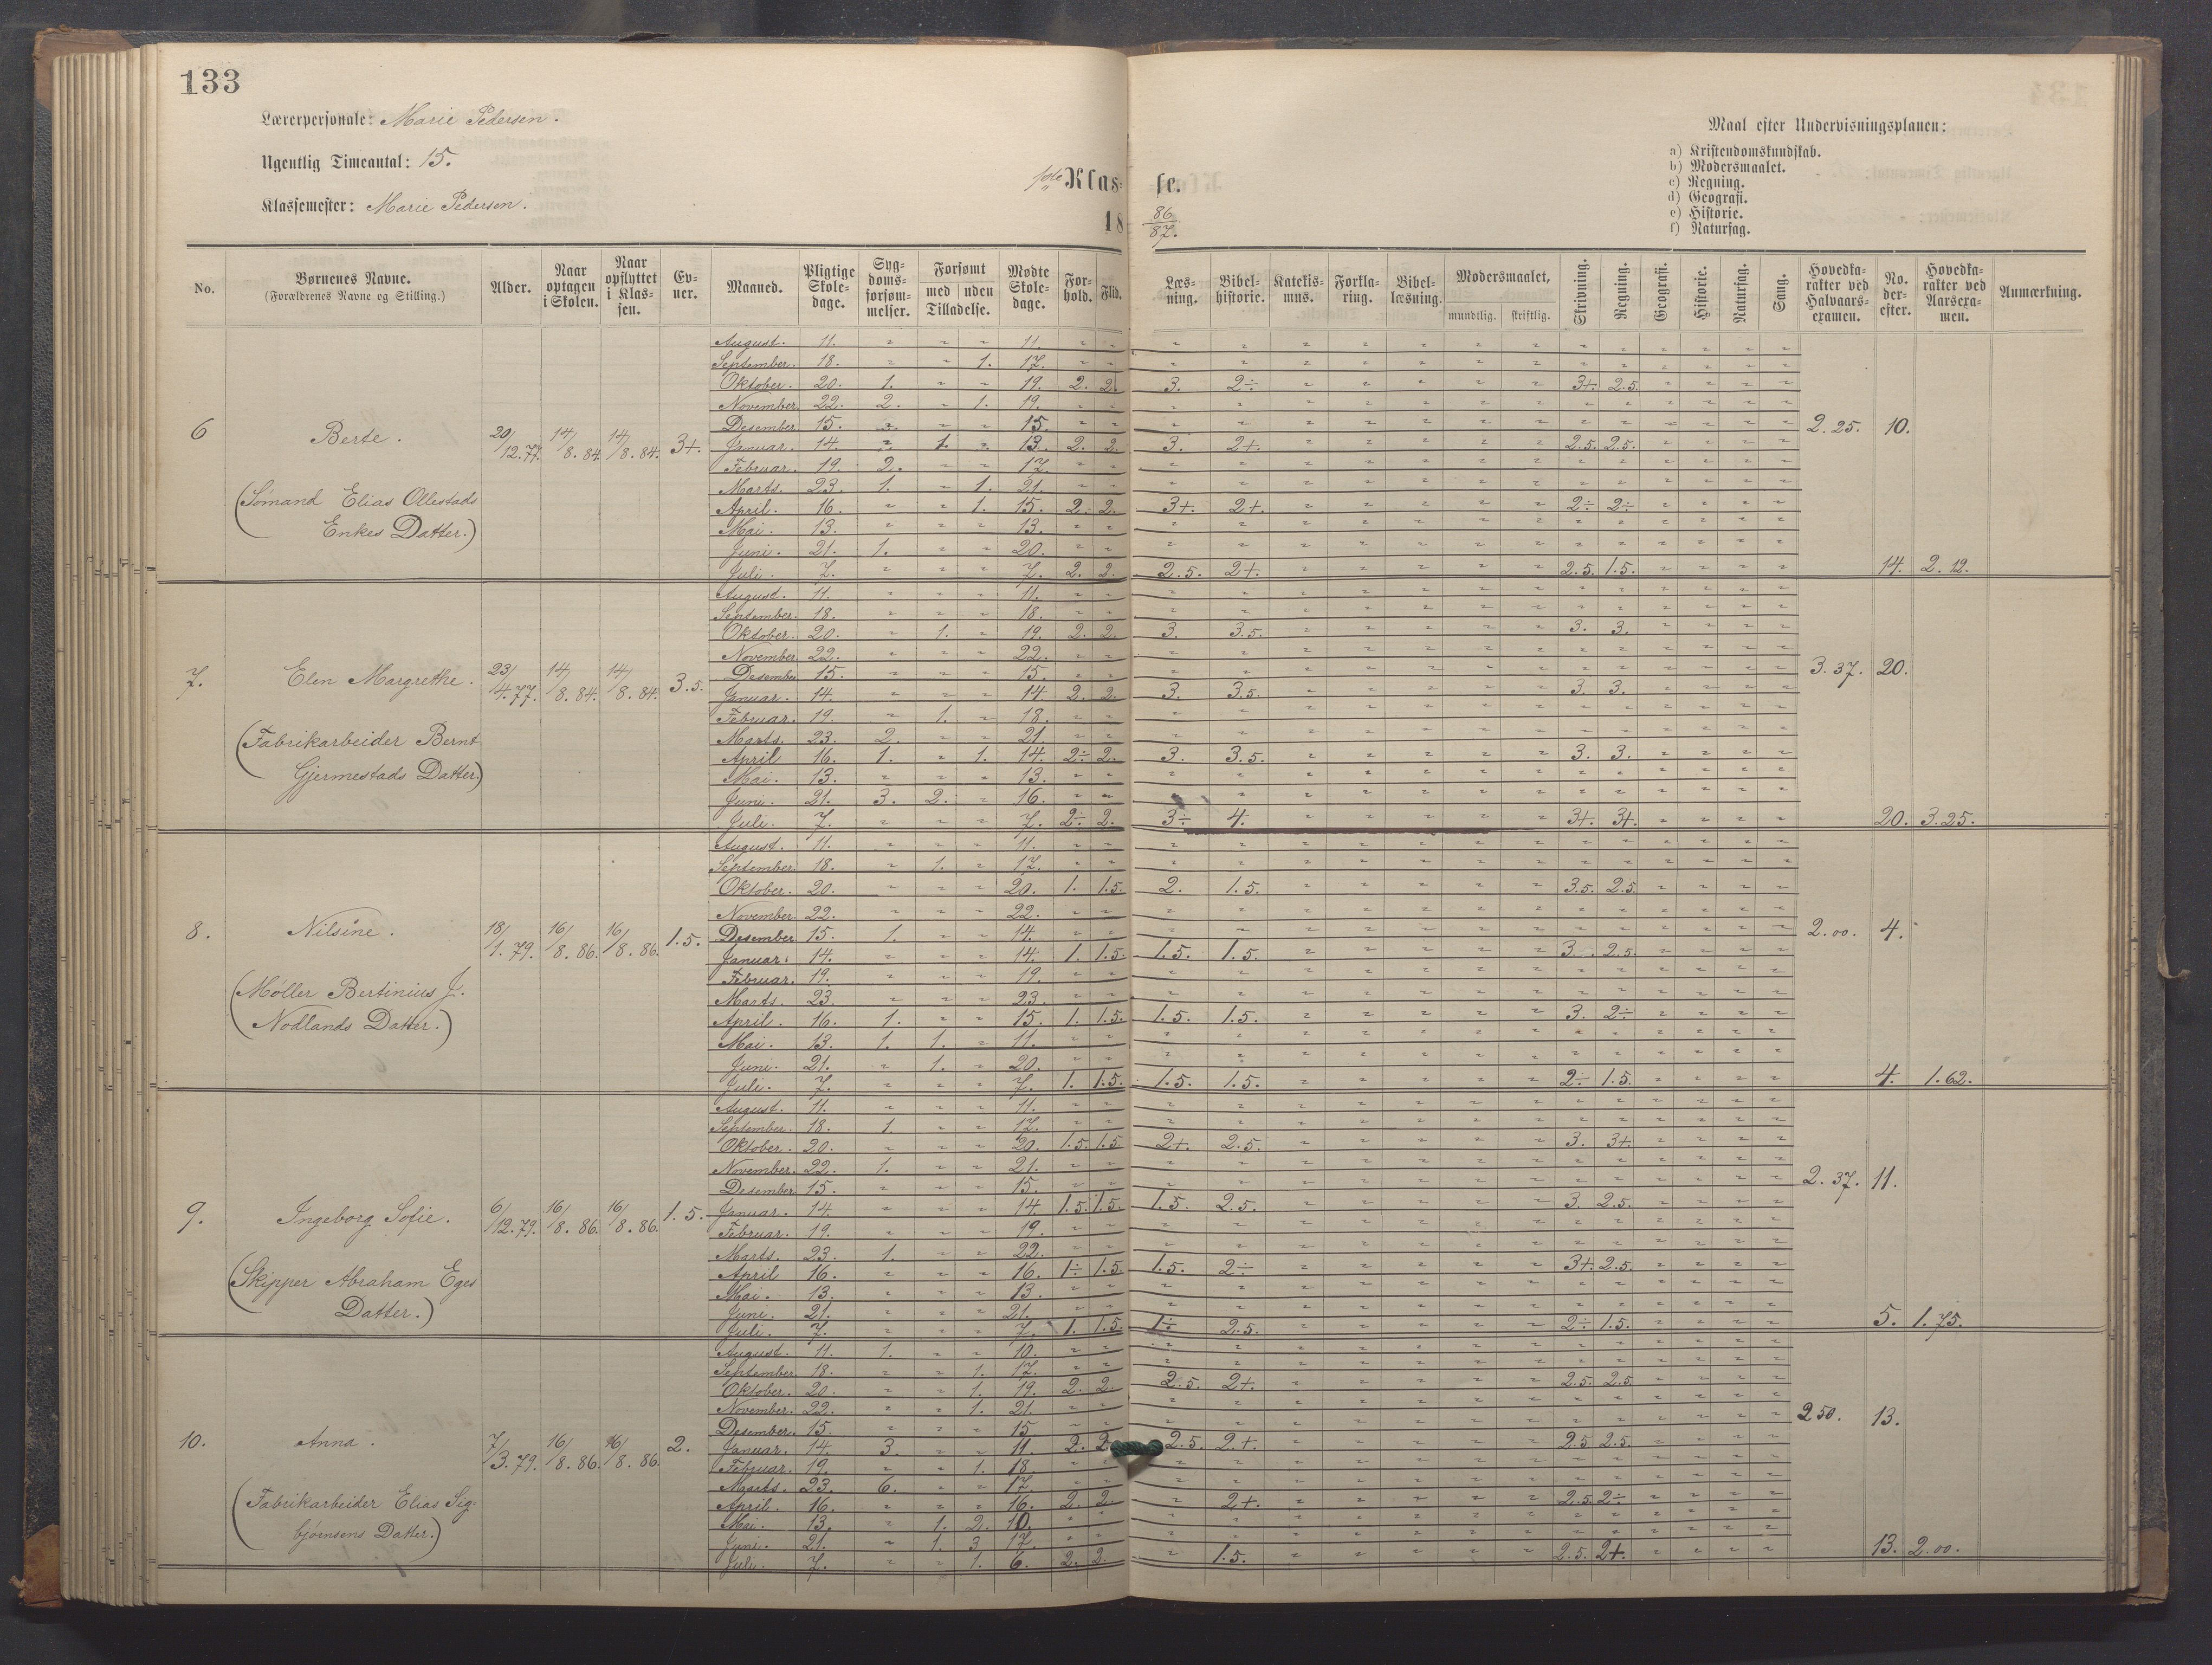 133
Lærerpersonale: Marie Pedersen.
Ugentlig Timeantal: 15.
Klassemester: Marie Pedersen.
1ste Klasse.
18 86/87.
Maal efter Undervisningsplanen:
a) Kristendomskundskab.
b) Modersmaalet.
c) Regning.
d) Geografi.
e) Historie.
f) Naturfag.
No. | Børnenes Navne. (Forældrenes Navne og Stilling.) | Alder. | Naar optagen i Skolen. | Naar opflyttet i Klassen. | Evner. | Maaned. | Pligtige Skoledage. | Sygdomsforsømmelser. | Forsømt med / uden Tilladelse. | Mødte Skoledage. | Forhold. | Flid. | Læsning. | Bibelhistorie. | Katekismus. | Forklaring. | Bibellæsning. | Modersmaalet, mundtlig. skriftlig. | Skrivning. | Regning. | Geografi. | Historie. | Naturfag. | Sang. | Hovedkarakter ved Halvaarsexamen. | No. derefter. | Hovedkarakter ved Aarsexamen. | Anmærkning.
6 Berte. 20/12.77. 14/8.84. 14/8.84. 3+. 2.25. 10.
(Sömand Elias Ollestads
Enkes Datter.)
August. 11. " " " 11.
September. 18. " " 1. 17.
Oktober. 20. 1. " " 19. 2. 2. 3. 2÷ 3+. 2.5.
November. 22. 2. " 1. 19.
Desember. 15. " " " 15.
Januar. 14. " 1. " 13. 2. 2. 3. 2+. 2.5. 2.5.
Februar. 19. 2. " " 17.
Marts. 23. 1. " 1. 21.
April. 16. " " 1. 15. 2. 2. 3+. 2+. 2÷ 2÷
Mai. 13. " " " 13.
Juni. 21. 1. " " 20.
Juli. 7. " " " 7. 2. 2. 2.5. 2+. 2.5. 1.5. 14. 2.12.
7. Elen Margrethe. 23/4.77. 14/8.84. 14/8.84. 3.5. 3.37. 20.
(Fabrikarbeider Bernt
Gjermestads Datter.)
August. 11. " " " 11.
September. 18. " " " 18.
Oktober. 20. " 1. " 19. 2. 2. 3. 3.5. 3. 3.
November. 22. " " " 22.
Desember. 15. " " " 15.
Januar. 14. " " " 14 2. 2. 3. 3.5. 3. 3.
Februar. 19. " 1. " 18.
Marts. 23. 2. " " 21.
April 16. 1. " 1. 14. 2÷ 2. 3. 3.5. 3. 3.
Mai. 13. " " " 13.
Juni. 21. 3. 2. " 16.
Juli. 7. " " " 7. 2÷ 2. 3÷ 4. 3+. 3+. 20. 3.25.
8. Nilsine. 18/1.79. 16/8.86. 16/8.86. 1.5. 2.00. 4.
(Möller Bertinius J.
Nodlands Datter.)
August. 11. " " " 11.
September. 18. " 1. " 17.
Oktober. 20. " " " 20. 1. 1.5. 2. 1.5. 3.5. 2.5.
November. 22. " " " 22.
Desember. 15. 1. " " 14.
Januar. 14. " " " 14. 1. 1.5. 1.5. 1.5. 3. 2.5.
Februar. 19. " " " 19.
Marts. 23. " " " 23.
April. 16. 1. " " 15. 1. 1.5. 1.5. 1.5. 3. 2÷
Mai. 13. 1. 1. " 11.
Juni. 21. " 1. " 20.
Juli. 7. " " " 7. 1. 1.5. 1.5. 1.5. 2÷ 1.5. 4. 1.62.
9. Ingeborg Sofie. 6/12.79. 16/8.86. 16/8.86. 1.5. 2.37. 11.
(Skipper Abraham Eges
Datter.)
August. 11. " " " 11.
September. 18. 1. " " 17.
Oktober. 20. " " " 20. 1.5. 1.5. 2+. 2.5. 3. 3+.
November. 22. 1. " " 21.
Desember. 15. " " " 15.
Januar. 14. " " " 14 1.5. 1.5. 1.5. 2.5. 3. 2.5.
Februar. 19. " " " 19.
Marts. 23. 1. " " 22.
April 16. " " " 16. 1÷ 1.5. 1.5. 2÷ 3+. 2.5.
Mai. 13. " " " 13.
Juni. 21. " " " 21.
Juli. 7. " " " 7. 1. 1.5. 1÷ 2.5. 2÷ 1.5. 5. 1.75.
10. Anna. 7/3.79. 16/8.86. 16/8.86. 2. 2.50. 13.
(Fabrikarbeider Elias Sig-
björnsens Datter.)
August. 11. 1. " " 10.
September. 18. " " 1. 17.
Oktober. 20. " " 1. 19. 2. 2. 2.5. 2+. 2.5. 2.5.
November. 22. " " 1. 21.
Desember. 15. " " " 15
Januar. 14. 3. " " 11. 2. 2. 2.5. 2+. 2.5 2.5.
Februar. 19. " " 1. 18.
Marts. 23. 6. " " 17.
April. 16. " " " 16. 2. 2. " 2+. 2.5. 2÷
Mai. 13. " 1. 2. 10.
Juni. 21. " 1. 3 17.
Juli. 7. " " 1. 6. 2. 2. " 1.5. 2.5. 2+. 13. 2.00.